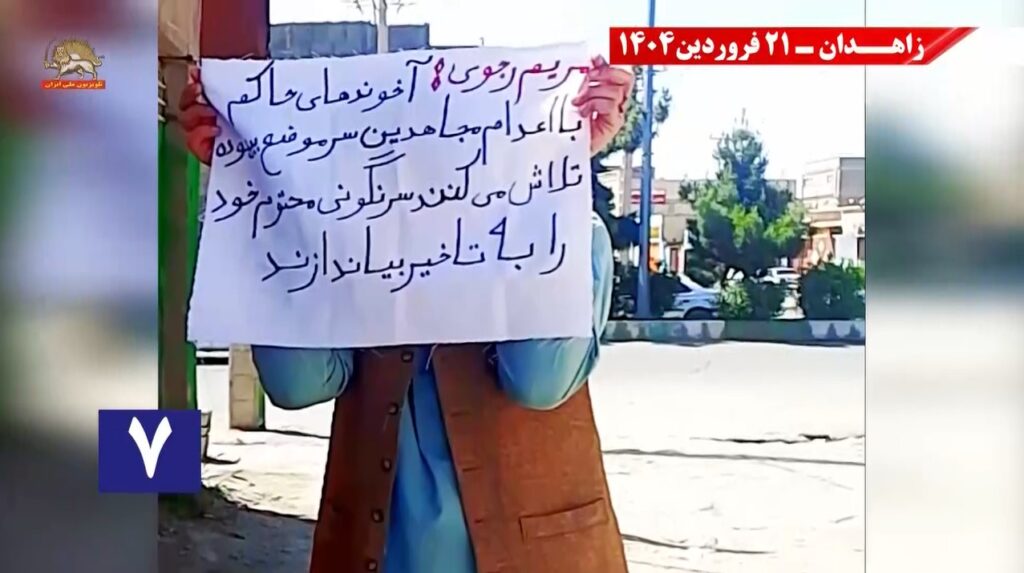 زاهدان - ۲۱ فروردین ۱۴۰۴
تلویزیون ملی ایران
مریم رجوی: آخوندهای حاکم
با اعدام مجاهدین سرموضع بیهوده
تلاش می کنند سرنگونی محتوم خود
را به تاخیر بیاندازند
۷